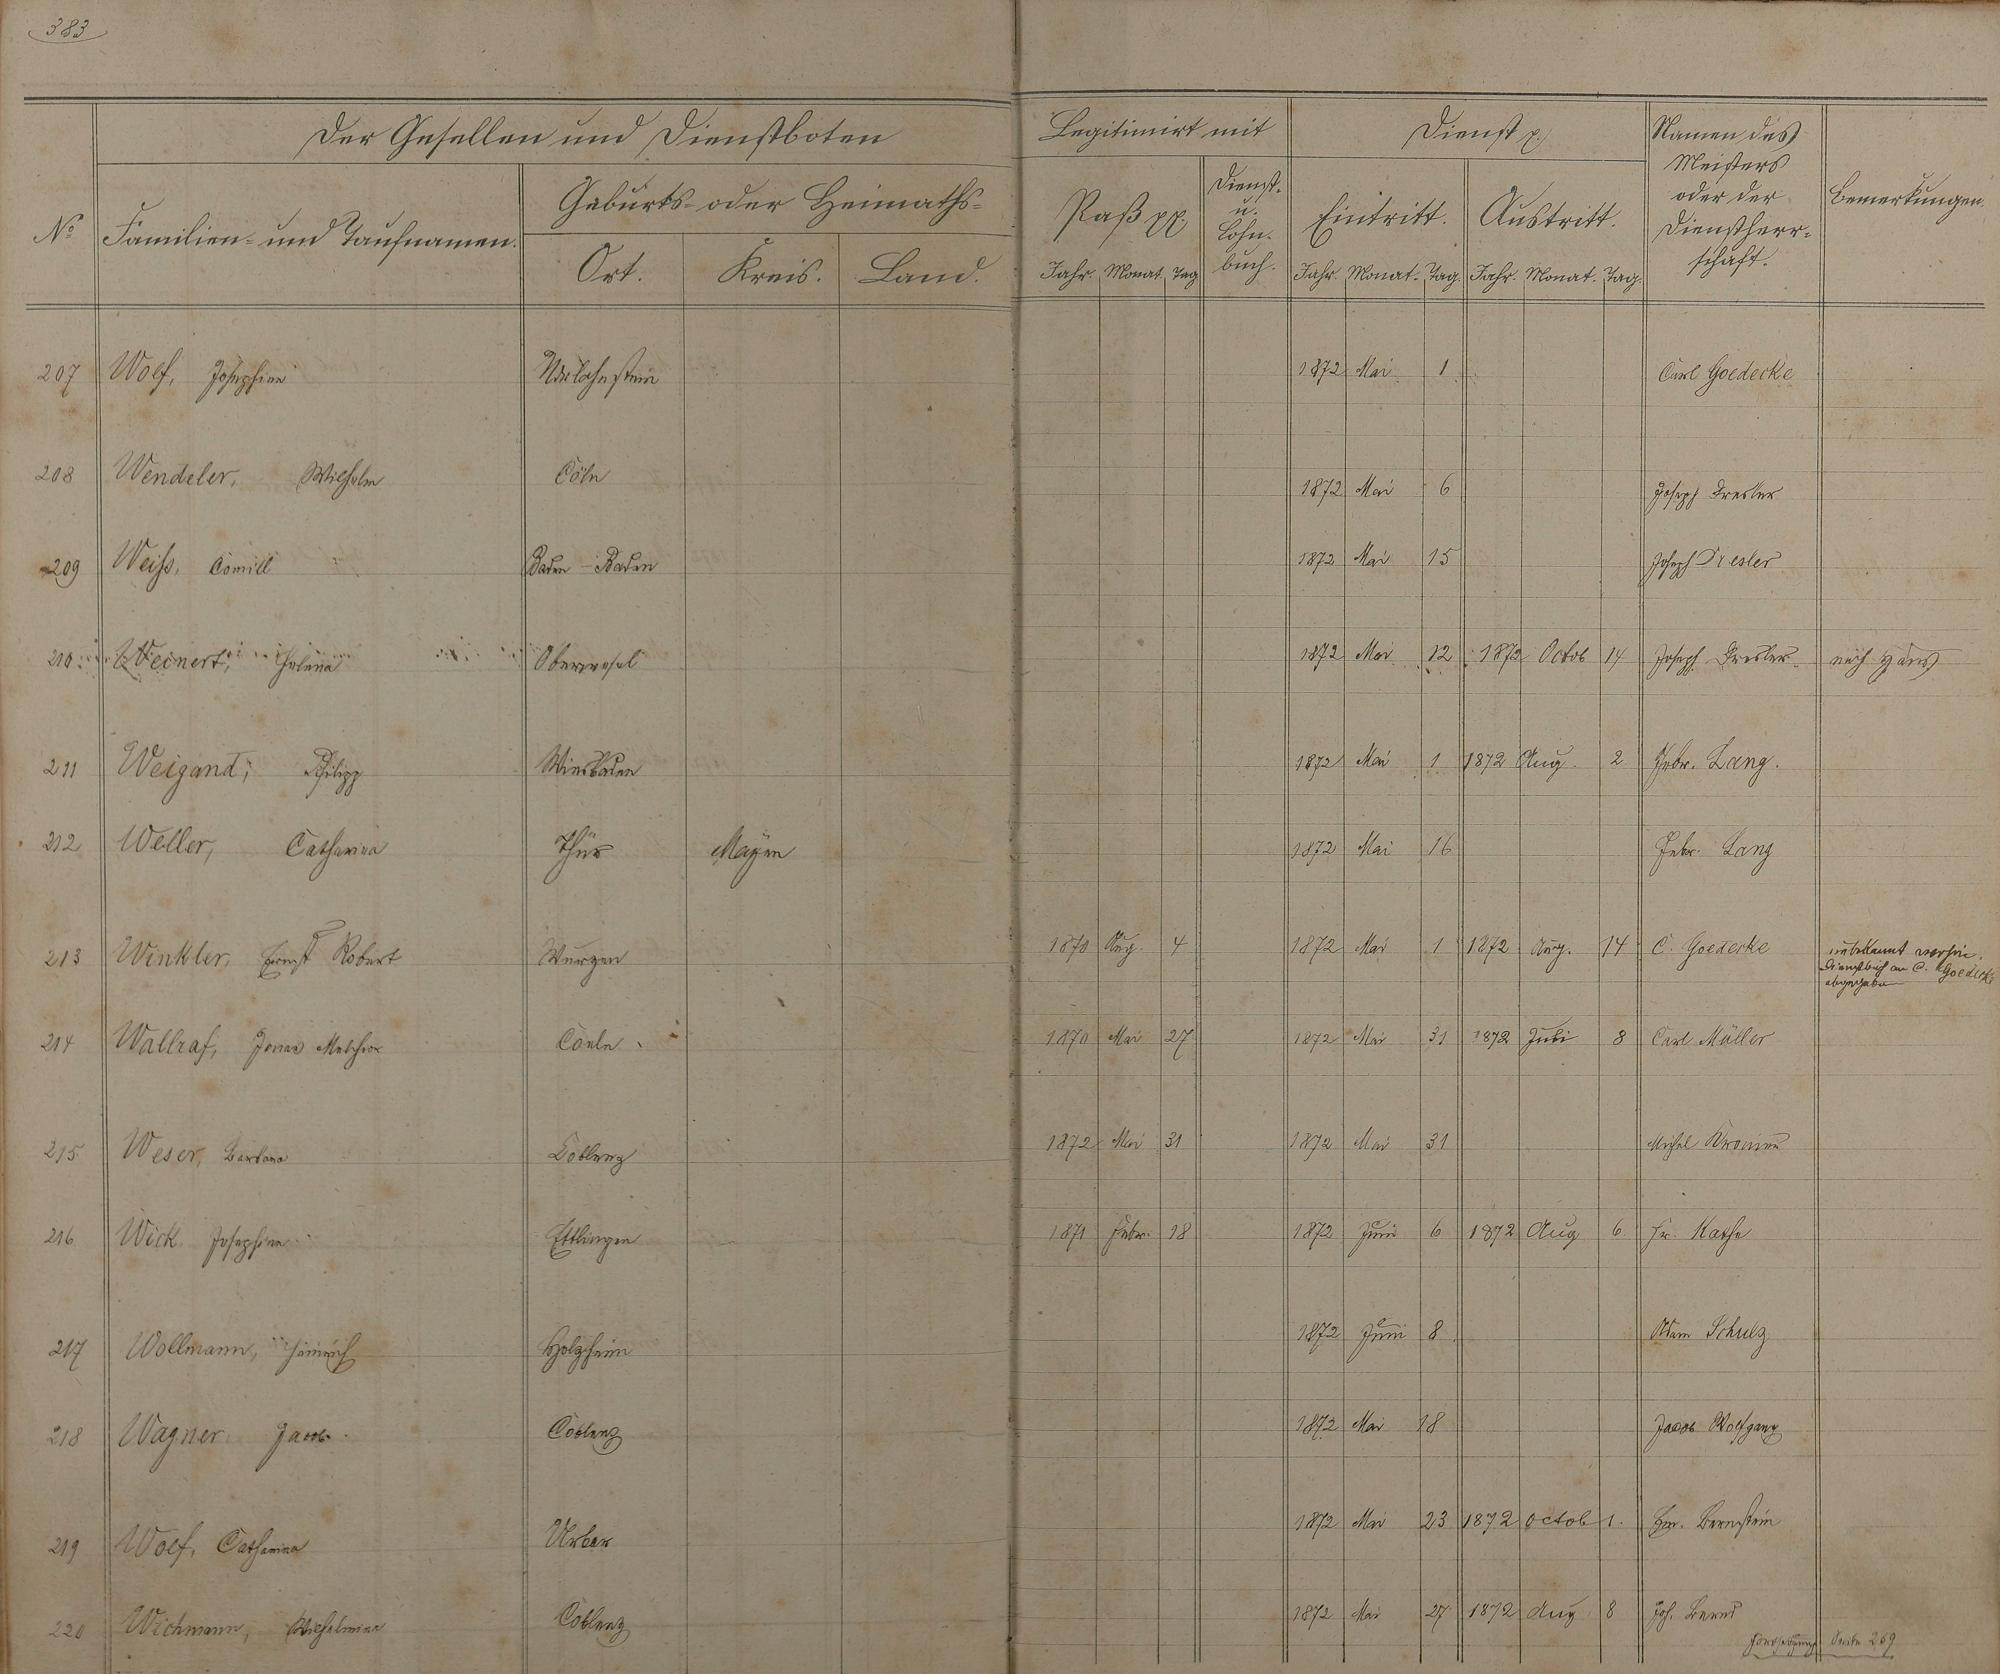 383
Der Gesellen und Dienstboten
Legitimirt mit
Dienst p.
Namen des Meisters oder der Dienstherrschaft.
Bemerkungen.
No
Familien- und Taufnamen.
Geburts- oder Heimaths-
Ort. Kreis. Land.
Paß pp.
Dienst- u. Lohn-buch.
Eintritt.
Austritt.
Jahr. Monat. Tag
Jahr. Monat. Tag. Jahr. Monat. Tag.
207 Wolf, Josephine 1872 Mai 1 Carl Goedecke
208 Wendeler, Wilhelm Cöln 1872 Mai 6 Joseph Dresler
209 Weiss, Baden-Baden 1872 Mai 15 Joseph Dresler
210 Weinert, Helena Oberwesel 1872 Mai 12 1872 Octob 14 Joseph Dresler nach Haus
211 Weigand, Philipp Wiesbaden 1872 Mai 1 1872 Aug. 2 Gebr. Lang.
212 Weller, Catharina Thür Mayen 1872 Mai 16 Gebr. Lang
213 Winkler, Ernst Robert Wurzen 1870 Aug. 4 1872 Mai 1 1872 Aug. 14 C. Goedecke unbekannt wohin.
Dienstbuch an C. Goedecke
abgegeben
214 Wallraf, Melchior Coeln 1870 Mai 27 1872 Mai 31 1872 Juli 8 Carl Müller
215 Weser, Barbara Coblenz 1872 Mai 31 1872 Mai 31 Michel
216 Wick Josephine Ettlingen 1871 Febr. 18 1872 Juni 6 1872 Aug 6 Fr. Kathe
217 Wollmann, Heinrich Holzheim 1872 Juni 8 Adam Schulz
218 Wagner Jacob Coblenz 1872 Mai 18 Jacob Wolfgang
219 Wolf, Catharina Urbar 1872 Mai 23 1872 Octob 1. Bernstein
220 Wichmann, Wilhelmina Coblenz 1872 Mai 27 1872 Aug 8 Joh. Bernd
Fortsetzung Seite 269